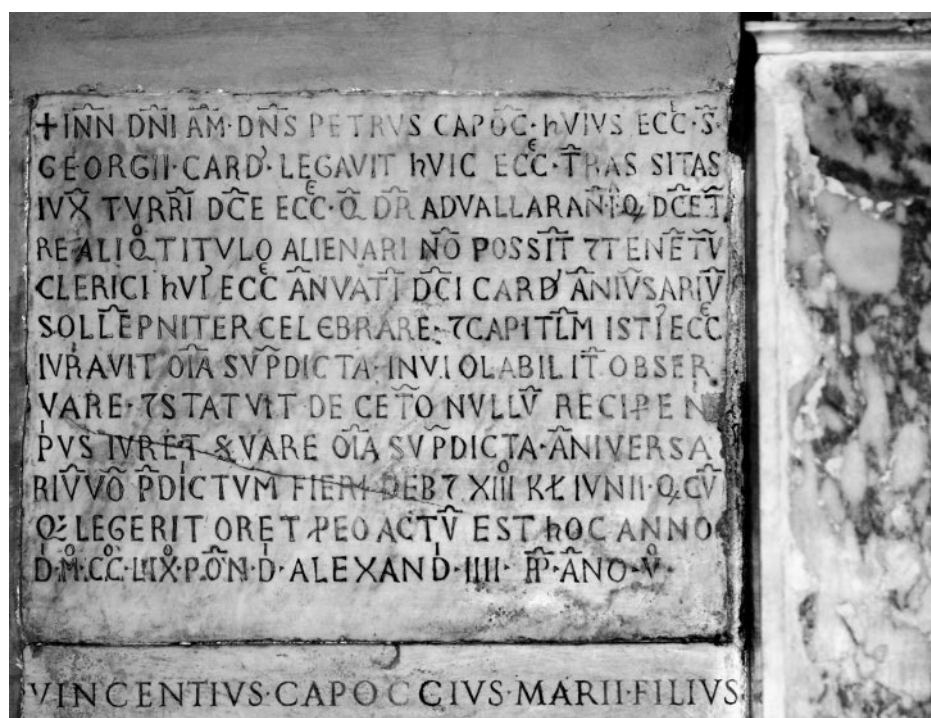 + INN DNI AM · DNS PETRVS CAPOC · hVIVS ECC · S ·
GEORGII · CARD' · LEGAVIT hVIC ECC · TRAS SITAS
IVX TVRRI DCE ECC · Q DR ADVALLARANI Q DCE T
RE ALIQO TITVLO ALIENARI NO POSSIT 7 TENETV
CLERICI hVI' ECC ANVATI DCI CARD' ANIVSARIV
SOLLEPNITER CELEBRARE · 7 CAPITLM ISTI' ECC
IVRAVIT OIA SVPDICTA · INVIOLABILIT OBSER
VARE · 7 STATVIT DE CETO NVLLV RECIPE N
PVS IVRET VARE OIA SVPDICTA · ANIVERSA
RIV VO PDICTVM FIERI DEB7 XIII KL IVNII · Q CV
Q LEGERIT ORET P EO ACTV EST hOC ANNO
D · M · CC · LIX · PON · D · ALEXAND · IIII · PP · ANO · V ·
VINCENTIVS · CAPOCCIVS · MARII · FILIVS